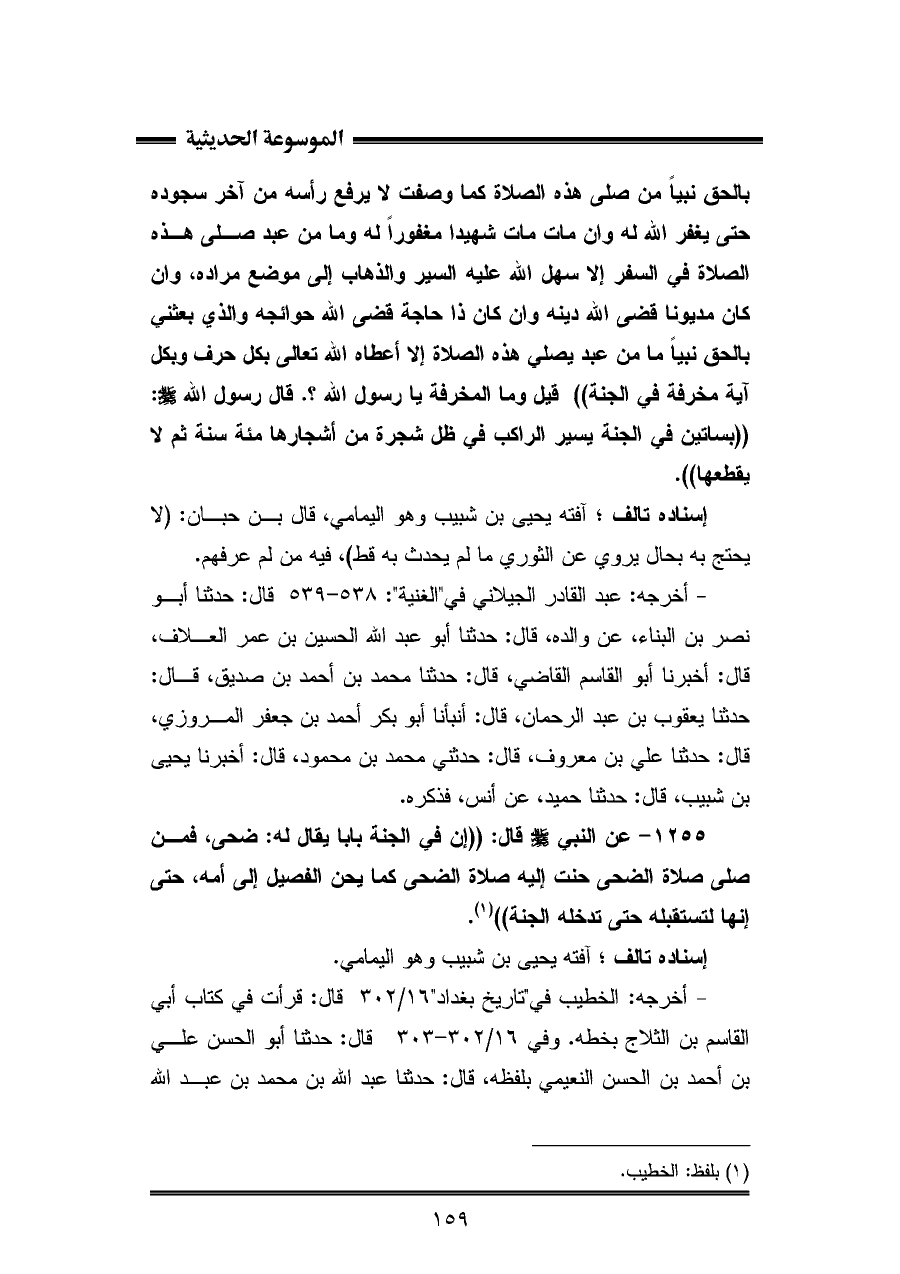 الموسوعة الحديثية
بالحق نبياً من صلى هذه الصلاة كما وصفت لا يرفع رأسه من آخر سجوده
حتى يغفر الله له وان مات مات شهيدا مغفوراً له وما من عبد صلى هذه
الصلاة في السفر إلا سهل الله عليه السير والذهاب إلى موضع مراده، وان
كان مديونا قضى الله دينه وان كان ذا حاجة قضى الله حوائجه والذي بعثني
بالحق نبياً ما من عبد يصلي هذه الصلاة إلا أعطاه الله تعالى بكل حرف وبكل
آية مخرفة في الجنة)) قيل وما المخرفة يا رسول الله ؟. قال رسول الله ﷺ:
((بساتين في الجنة يسير الراكب في ظل شجرة من أشجارها مئة سنة ثم لا
يقطعها)).
إسناده تالف ؛ آفته يحيى بن شبيب وهو اليمامي، قال بن حبان: (لا
يحتج به بحال يروي عن الثوري ما لم يحدث به قط)، فيه من لم عرفهم.
- أخرجه: عبد القادر الجيلاني في"الغنية": ٥٣٨-٥٣٩ قال: حدثنا أبو
نصر بن البناء، عن والده، قال: حدثنا أبو عبد الله الحسين بن عمر العلاف،
قال: أخبرنا أبو القاسم القاضي، قال: حدثنا محمد بن أحمد بن صديق، قال:
حدثنا يعقوب بن عبد الرحمان، قال: أنبأنا أبو بكر أحمد بن جعفر المروزي،
قال: حدثنا علي بن معروف، قال: حدثني محمد بن محمود، قال: أخبرنا يحيى
بن شبيب، قال: حدثنا حميد، عن أنس، فذكره.
١٢٥٥- عن النبي ﷺ قال: ((إن في الجنة بابا يقال له: ضحى، فمن
صلى صلاة الضحى حنت إليه صلاة الضحى كما يحن الفصيل إلى أمه، حتى
إنها لتستقبله حتى تدخله الجنة))(١).
إسناده تالف ؛ آفته يحيى بن شبيب وهو اليمامي.
- أخرجه: الخطيب في"تاريخ بغداد"٣٠٢/١٦ قال: قرأت في كتاب أبي
القاسم بن الثلاج بخطه. وفي ٣٠٢/١٦-٣٠٣ قال: حدثنا أبو الحسن علي
بن أحمد بن الحسن النعيمي بلفظه، قال: حدثنا عبد الله بن محمد بن عبد الله
(١) بلفظ: الخطيب.
١٥٩